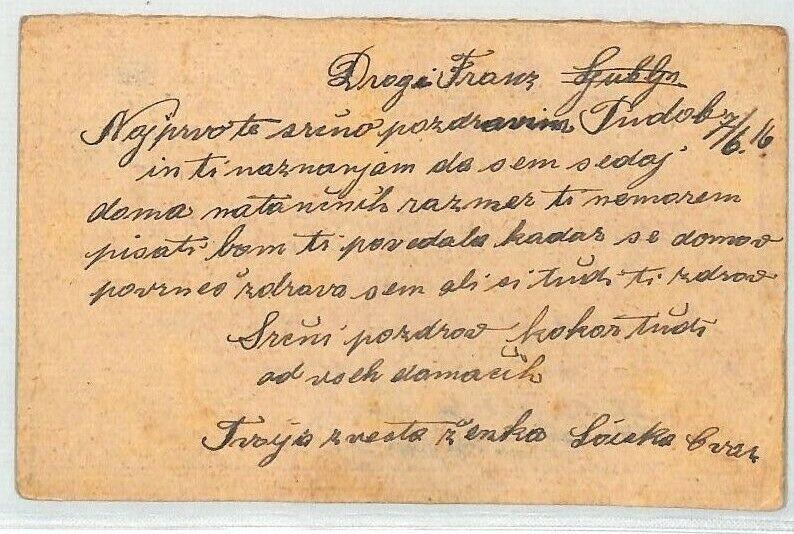 Dragi Franz
Najprvo te srčno pozdravim Tudob 7/6.16
in ti naznanjam da sem sedaj
doma natančnih razmer ti nemorem
pisati bom ti povedala kadar se domov
povrneš zdrava sem ali si tudi ti zdrav
Srčni pozdrav kokor tudi
od vseh domačih
Tvoja zvesta ženka